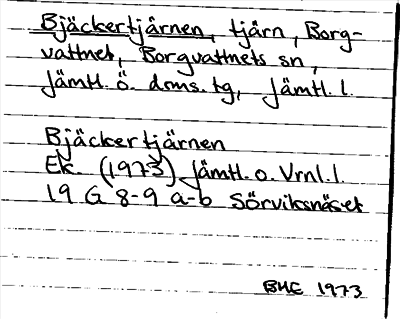 Bjäckertjärnen, tjärn, Borg-
vattnet, Borgvattnets sn,
Jämtl. Ö. doms. tg, Jämtl. l.
Bjäckertjärnen
Ek. (1973) Jämtl. o. Vrnl. l.
19 G 8-9 a-b Sörviksnäset
BME 1973